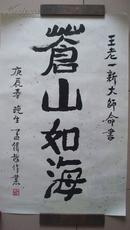 王老一新大师命書
蒼山如海
庚辰春晚生